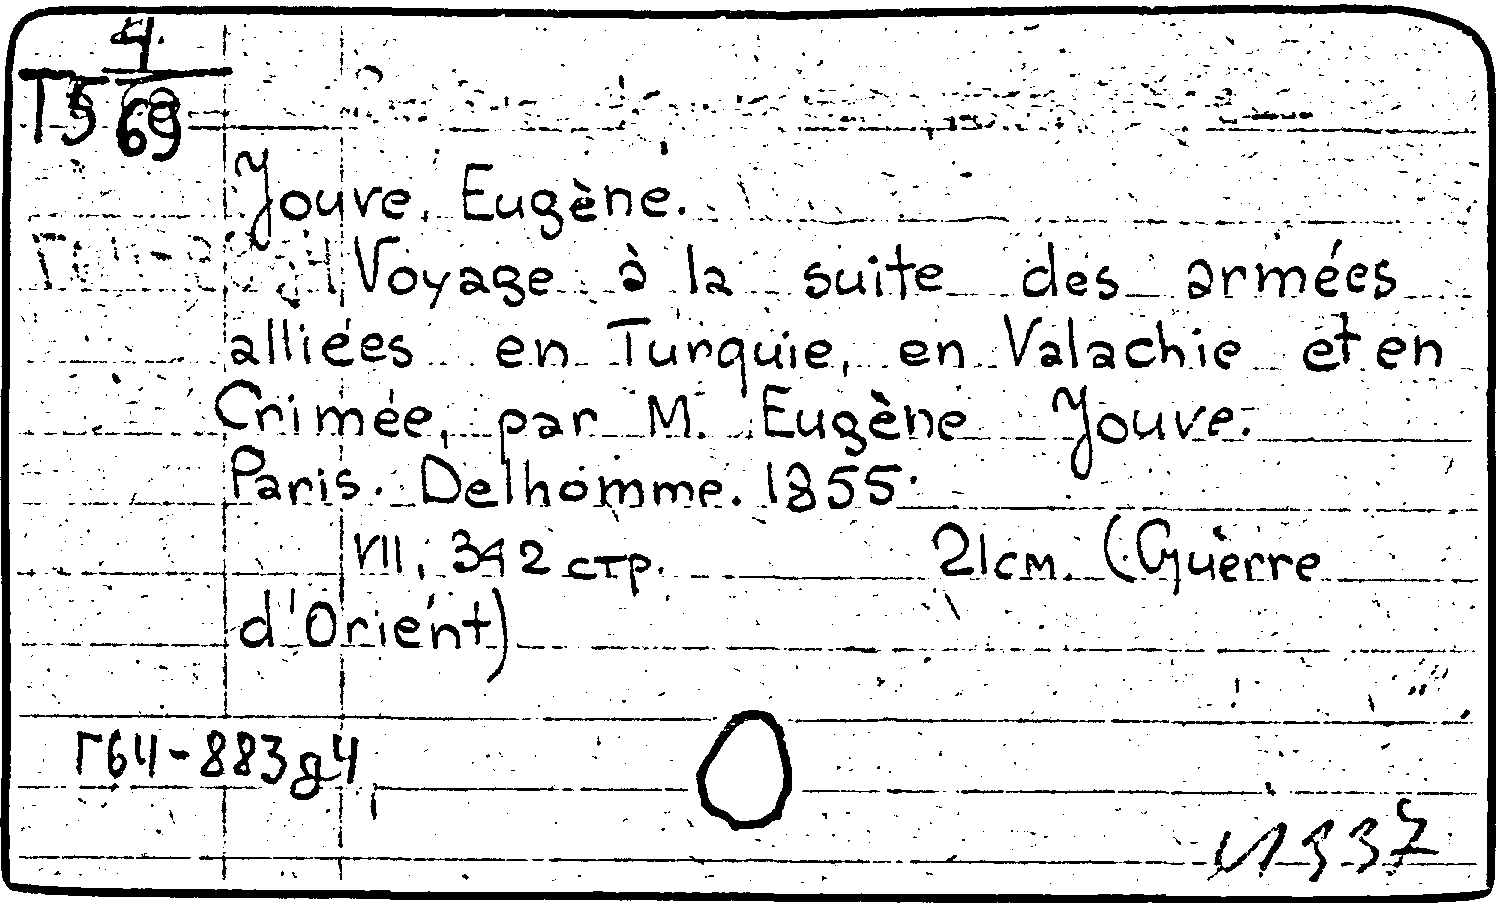 4
Г5 69
Jouve, Eugène.
Voyage à la suite des armées
alliées en Turquie, en Valachie et en
Crimée, par M. Eugène Jouve.
Paris. Delhomme. 1855.
VII, 342 стр. 21см. (Guèrre
d'Orient)
Г64-883д4
И337